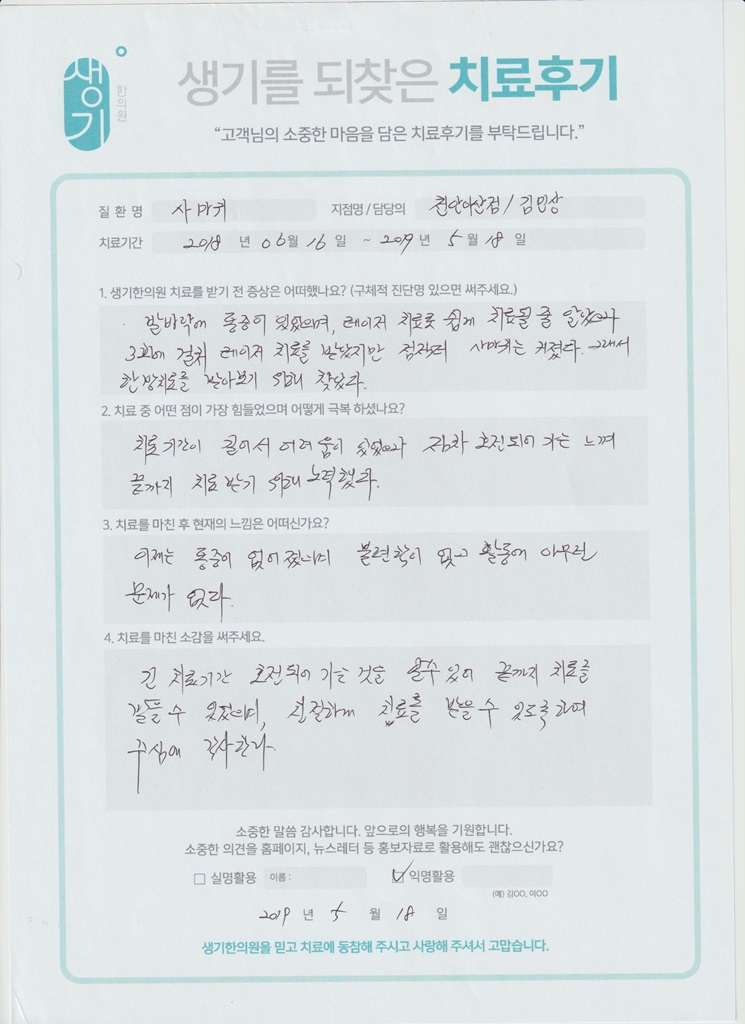 생기
한의원
생기를 되찾은 치료후기
“고객님의 소중한 마음을 담은 치료후기를 부탁드립니다.”
질 환 명 사마귀 지점명 / 담당의 천안아산점 / 김민상
치료기간 2018 년 06 월 16 일 ~ 2019 년 5 월 18 일
1. 생기한의원 치료를 받기 전 증상은 어떠했나요? (구체적 진단명 있으면 써주세요.)
발바닥에 통증이 있었으며, 레이저 치료로 쉽게 치료될 줄 알았으나
3회에 걸쳐 레이저 치료를 받았지만 점차 더 사마귀는 커졌다. 그래서
한방치료를 받아보기 위해 찾았다.
2. 치료 중 어떤 점이 가장 힘들었으며 어떻게 극복 하셨나요?
치료기간이 길어서 어려움이 있었으나 점차 호전되어 가는 느껴
끝까지 치료 받기 위해 노력했다.
3. 치료를 마친 후 현재의 느낌은 어떠신가요?
이제는 통증이 없어졌으며 불편함이 없고 활동에 아무런
문제가 없다.
4. 치료를 마친 소감을 써주세요.
긴 치료기간 호전되어 가는 것을 알 수 있어 끝까지 치료를
받을 수 있었으며, 친절하게 진료를 받을 수 있도록 하여
주심에 감사한다.
소중한 말씀 감사합니다. 앞으로의 행복을 기원합니다.
소중한 의견을 홈페이지, 뉴스레터 등 홍보자료로 활용해도 괜찮으신가요?
실명활용 이름 : 익명활용
(예) 김OO, 이OO
2019 년 5 월 18 일
생기한의원을 믿고 치료에 동참해 주시고 사랑해 주셔서 고맙습니다.